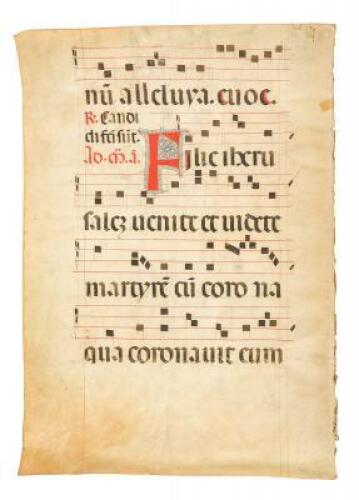 nū alleluya. euoe.
R. Candi
di fcī sūt.
Ad. ꝯ̄. ā. Filie iheru
salez uenite et uidete
martyrē cū coro na
qua coronauit eum